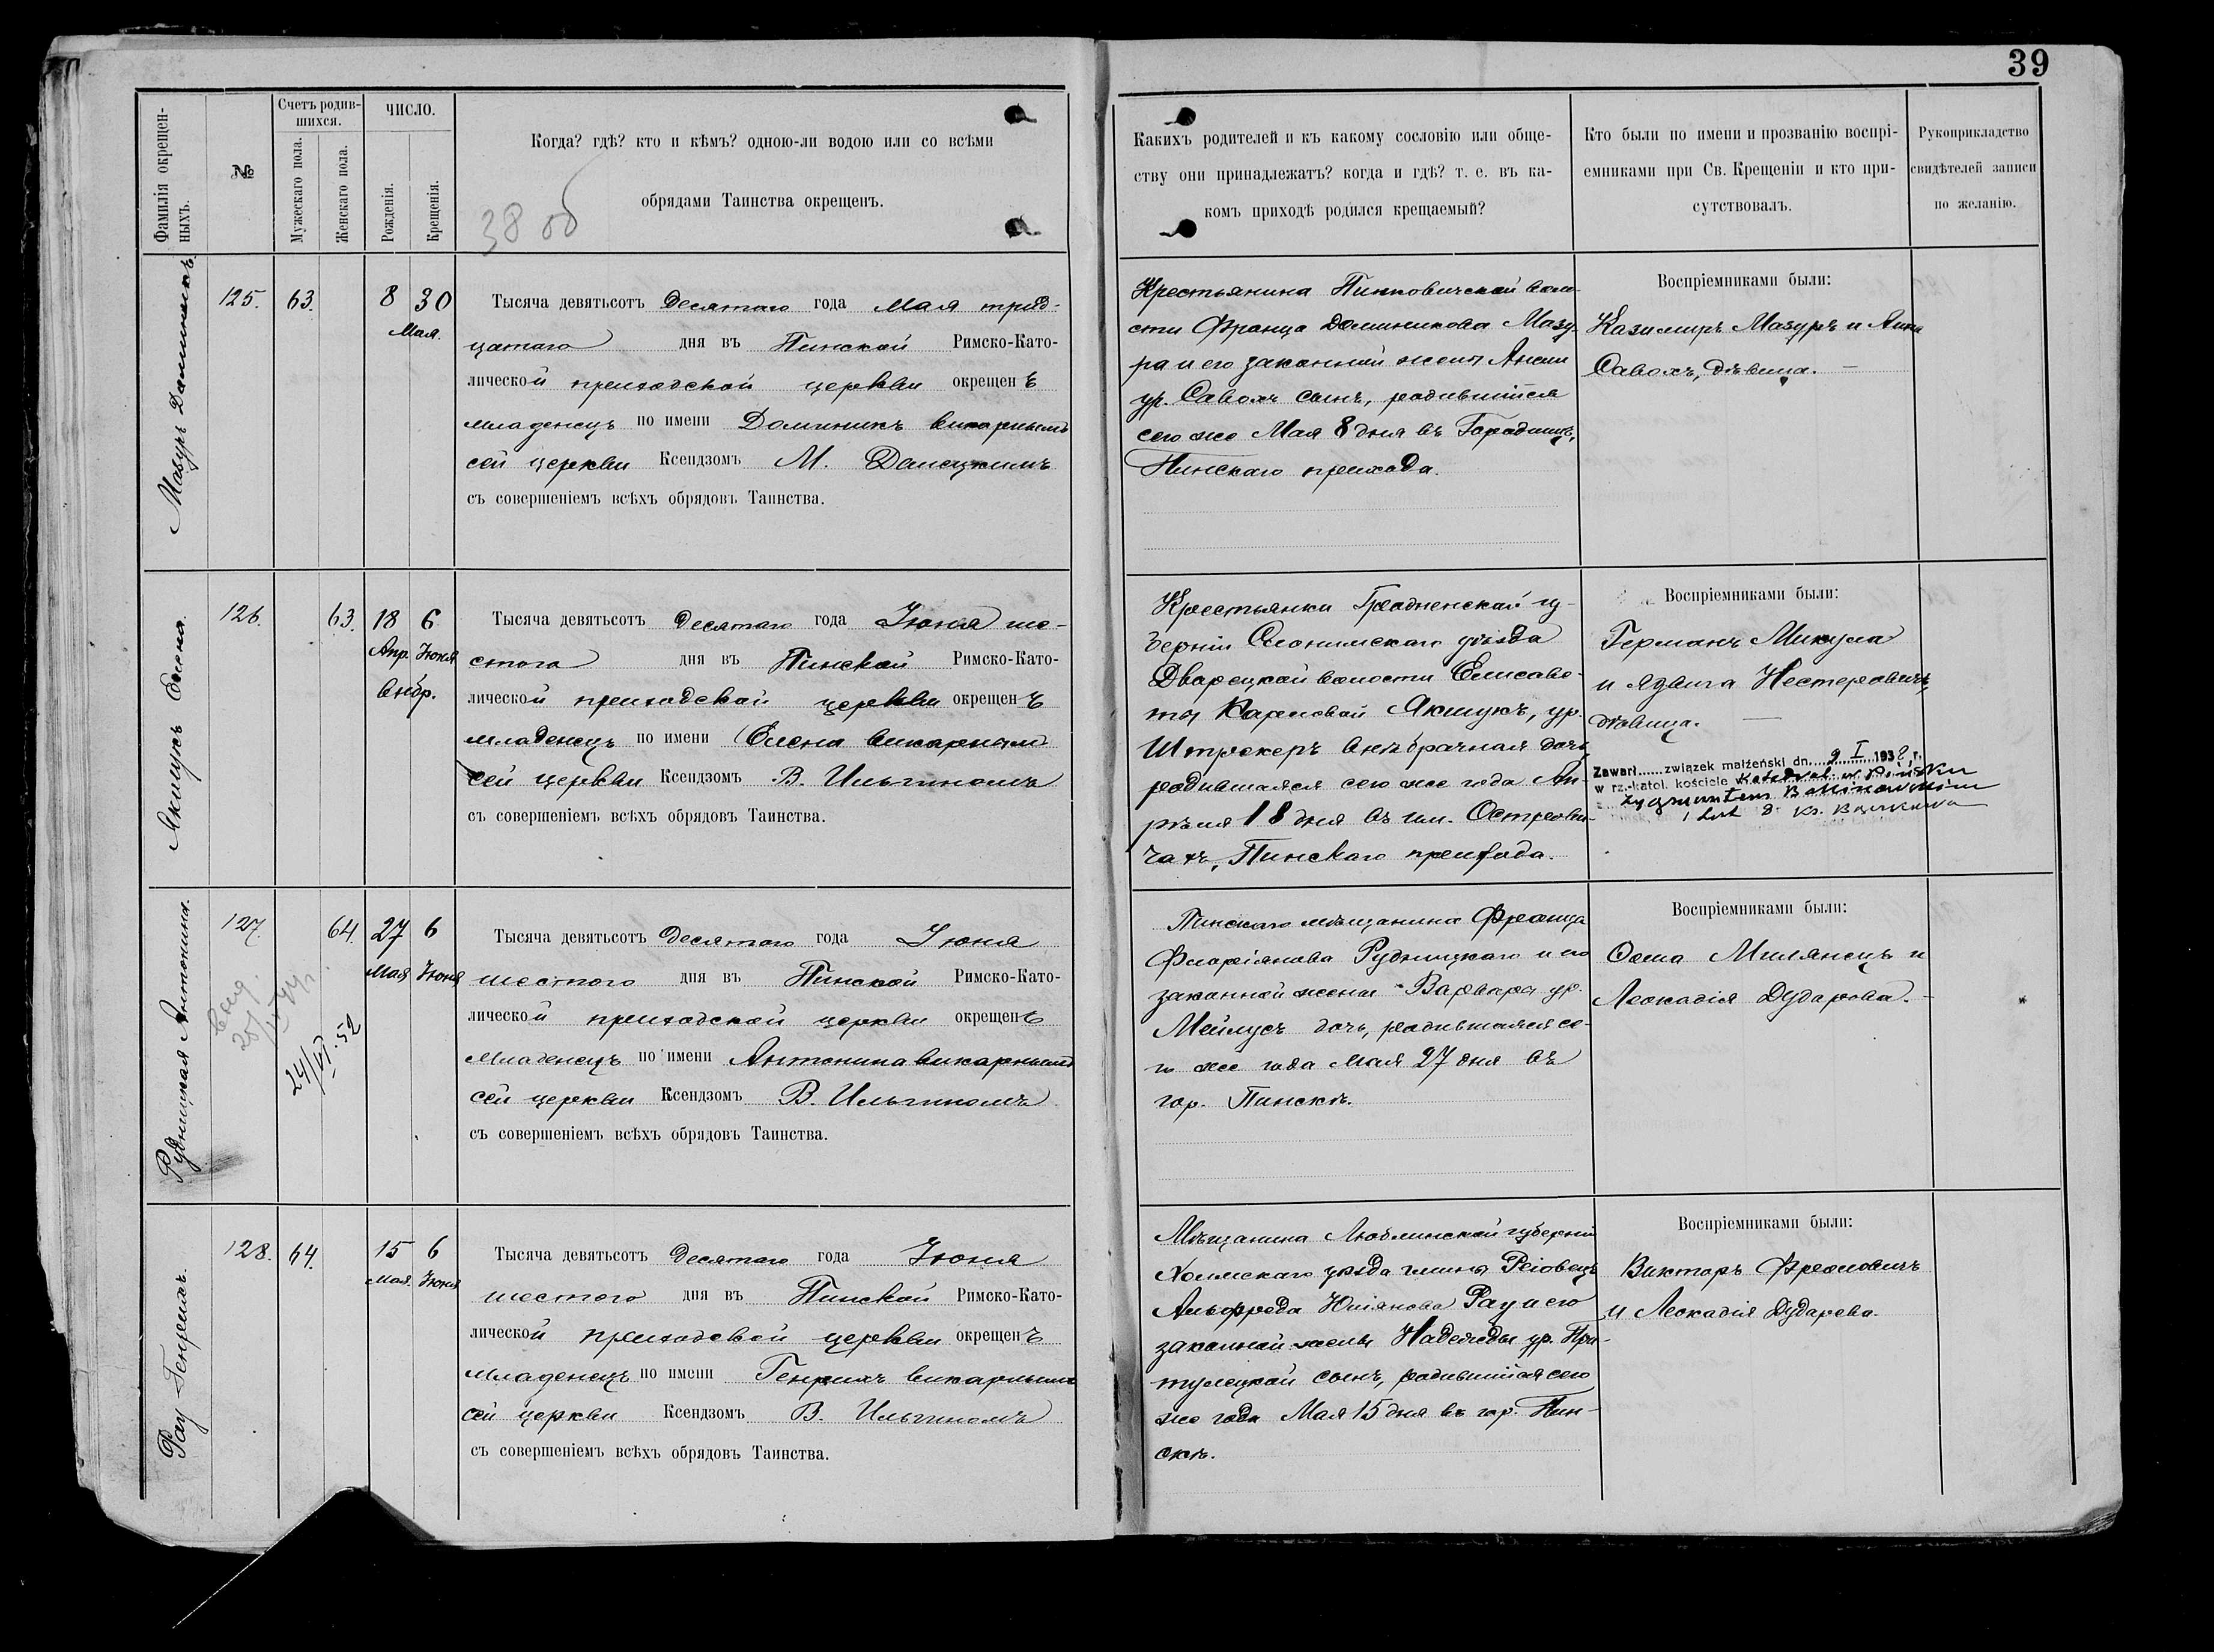 39
Фамилія окрещен-
ныхъ.
№
Счетъ родив-
шихся.
Мужескаго пола.
Женскаго пола.
ЧИСЛО.
Рожденія.
Крещенія.
Когда? гдѣ? кто и кѣмъ? одною-ли водою или со всѣми
обрядами Таинства окрещенъ.
38 об
Какихъ родителей и къ какому сословію или обще-
ству они принадлежатъ? когда и гдѣ? т. е. въ ка-
комъ приходѣ родился крещаемый?
Кто были по имени и прозванію воспрі-
емниками при Св. Крещеніи и кто при-
сутствовалъ.
Рукоприкладство
свидѣтелей записи
по желанію.
Мазуръ Доминикъ.
125.
63.
8 30
Мая.
Тысяча девятьсотъ десятаго года Мая трид-
цатаго дня въ Пинской Римско-Като-
лической приходской церкви окрещенъ
младенецъ по имени Доминикъ викарнымъ
сей церкви Ксендзомъ М.
съ совершеніемъ всѣхъ обрядовъ Таинства.
Крестьянина Пинковичской воло-
сти Франца Доминикова Мазу-
ра и его законной жены
ур. Савохъ сынъ, родившійся
сего же Мая 8 дня въ Городищѣ,
Пинскаго прихода.
Воспріемниками были:
Казимиръ Мазуръ и Анна
Савохъ, дѣвица.
Якшукъ Елена.
126.
63.
18 6
Апр. Іюня
внѣбр.
Тысяча девятьсотъ десятаго года Іюня ше-
стого дня въ Пинской Римско-Като-
лической приходской церкви окрещенъ
младенецъ по имени Елена викарнымъ
сей церкви Ксендзомъ В. Ильгиномъ
съ совершеніемъ всѣхъ обрядовъ Таинства.
Крестьянки Гродненской гу-
берніи Слонимскаго уѣзда
Дворецкой волости Елисаве-
ты Карловой Якшукъ, ур.
Штрекеръ внѣбрачная дочь,
родившаяся сего же года Ап-
рѣля 18 дня въ им. Острови-
чахъ, Пинскаго прихода.
Воспріемниками были:
Германъ Микула
и Ядвига Нестеровичъ,
дѣвица.
Zawarł......związek małżeński dn. 9 I 1938 r.
w rz.-katol. kościele w Katedral. w Pińsku
z Zygmuntem
Рудницкая Антонина.
127.
64.
27 6
Мая Іюня
24/VI.52
Тысяча девятьсотъ десятаго года Іюня
шестого дня въ Пинской Римско-Като-
лической приходской церкви окрещенъ
младенецъ по имени Антонина викарнымъ
сей церкви Ксендзомъ В. Ильгиномъ
съ совершеніемъ всѣхъ обрядовъ Таинства.
Пинскаго мѣщанина Франца
Флоріянова Рудницкаго и его
законной жены Варвары ур.
Мейлусъ дочь, родившаяся се-
го же года Мая 27 дня въ
гор. Пинскѣ.
Воспріемниками были:
Ѳома Милянецъ и
Леокадія Дударева.
Рау Генрихъ.
128.
64.
15 6
Мая. Іюня
Тысяча девятьсотъ десятаго года Іюня
шестого дня въ Пинской Римско-Като-
лической приходской церкви окрещенъ
младенецъ по имени Генрихъ викарнымъ
сей церкви Ксендзомъ В. Ильгиномъ
съ совершеніемъ всѣхъ обрядовъ Таинства.
Мѣщанина Люблинской губерніи
Холмскаго уѣзда гмины Реіовецъ
Альфреда Юліянова Рау и его
законной жены Надежды ур. При-
тулецкой сынъ, родившійся сего
же года Мая 15 дня въ гор. Пин-
скѣ.
Воспріемниками были:
Викторъ
и Леокадія Дударева.